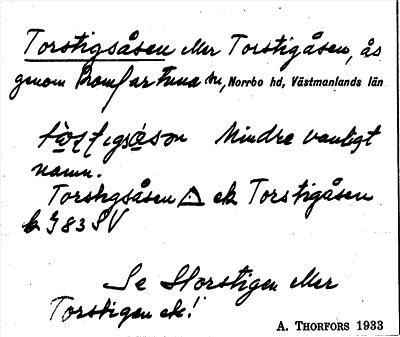 Torstigsåsen eller Torstigåsen, ås
genom Romfartuna sn, Norrbo hd, Västmanlands län
Mindre vanligt
namn.
Torstigsåsen △ ek Torstigåsen
k J 83 SV
Se Storstigen eller
Torstigen ek!
A. THORFORS 1933